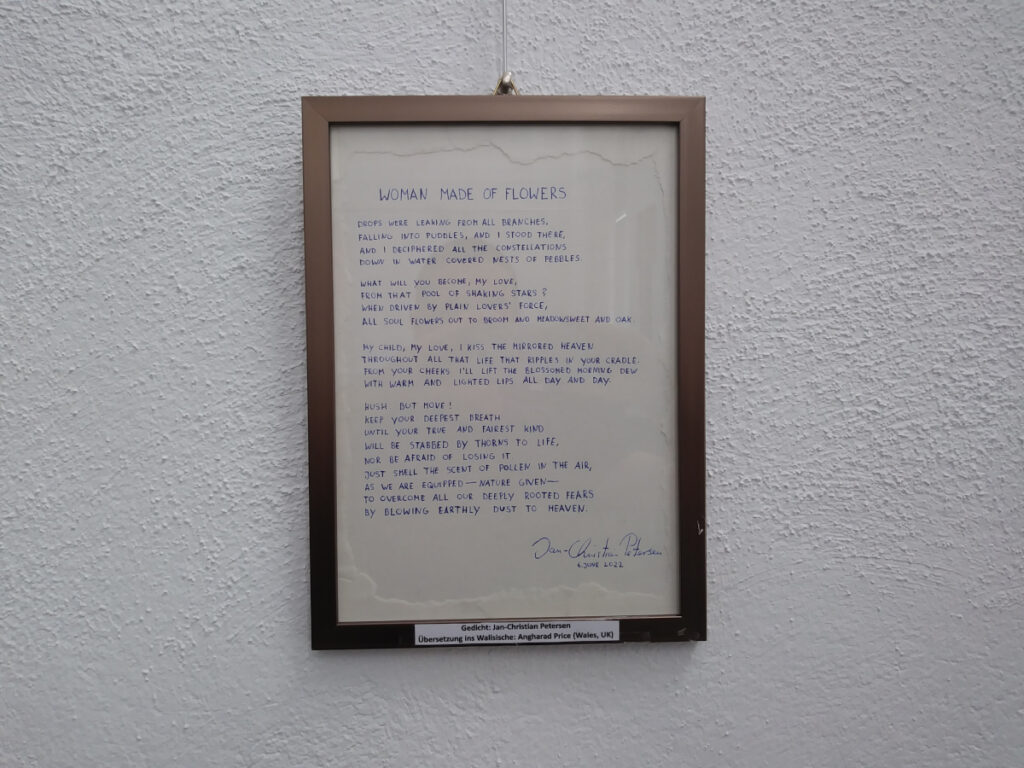 WOMAN MADE OF FLOWERS
DROPS WERE LEAKING FROM ALL BRANCHES,
FALLING INTO PUDDLES, AND I STOOD THERE,
AND I DECIPHERED ALL THE CONSTELLATIONS
DOWN IN WATER COVERED NESTS OF PEBBLES.
WHAT WILL YOU BECOME, MY LOVE,
FROM THAT POOL OF SHAKING STARS?
WHEN DRIVEN BY PLAIN LOVERS' FORCE,
ALL SOUL FLOWERS OUT TO BROOM AND MEADOWSWEET AND OAK.
MY CHILD, MY LOVE, I KISS THE MIRRORED HEAVEN
THROUGHOUT ALL THAT LIFE THAT RIPPLES IN YOUR CRADLE.
FROM YOUR CHEEKS I'LL LIFT THE BLOSSOMED MORNING DEW
WITH WARM AND LIGHTED LIPS ALL DAY AND DAY.
HUSH BUT MOVE!
KEEP YOUR DEEPEST BREATH
UNTIL YOUR TRUE AND FAIREST KIND
WILL BE STABBED BY THORNS TO LIFE,
NOR BE AFRAID OF LOSING IT
JUST SMELL THE SCENT OF POLLEN IN THE AIR,
AS WE ARE EQUIPPED—NATURE GIVEN—
TO OVERCOME ALL OUR DEEPLY ROOTED FEARS
BY BLOWING EARTHLY DUST TO HEAVEN.
Jan-Christian Petersen
6. JUNE 2022
Gedicht: Jan-Christian Petersen
Übersetzung ins Walisische: Angharad Price (Wales, UK)